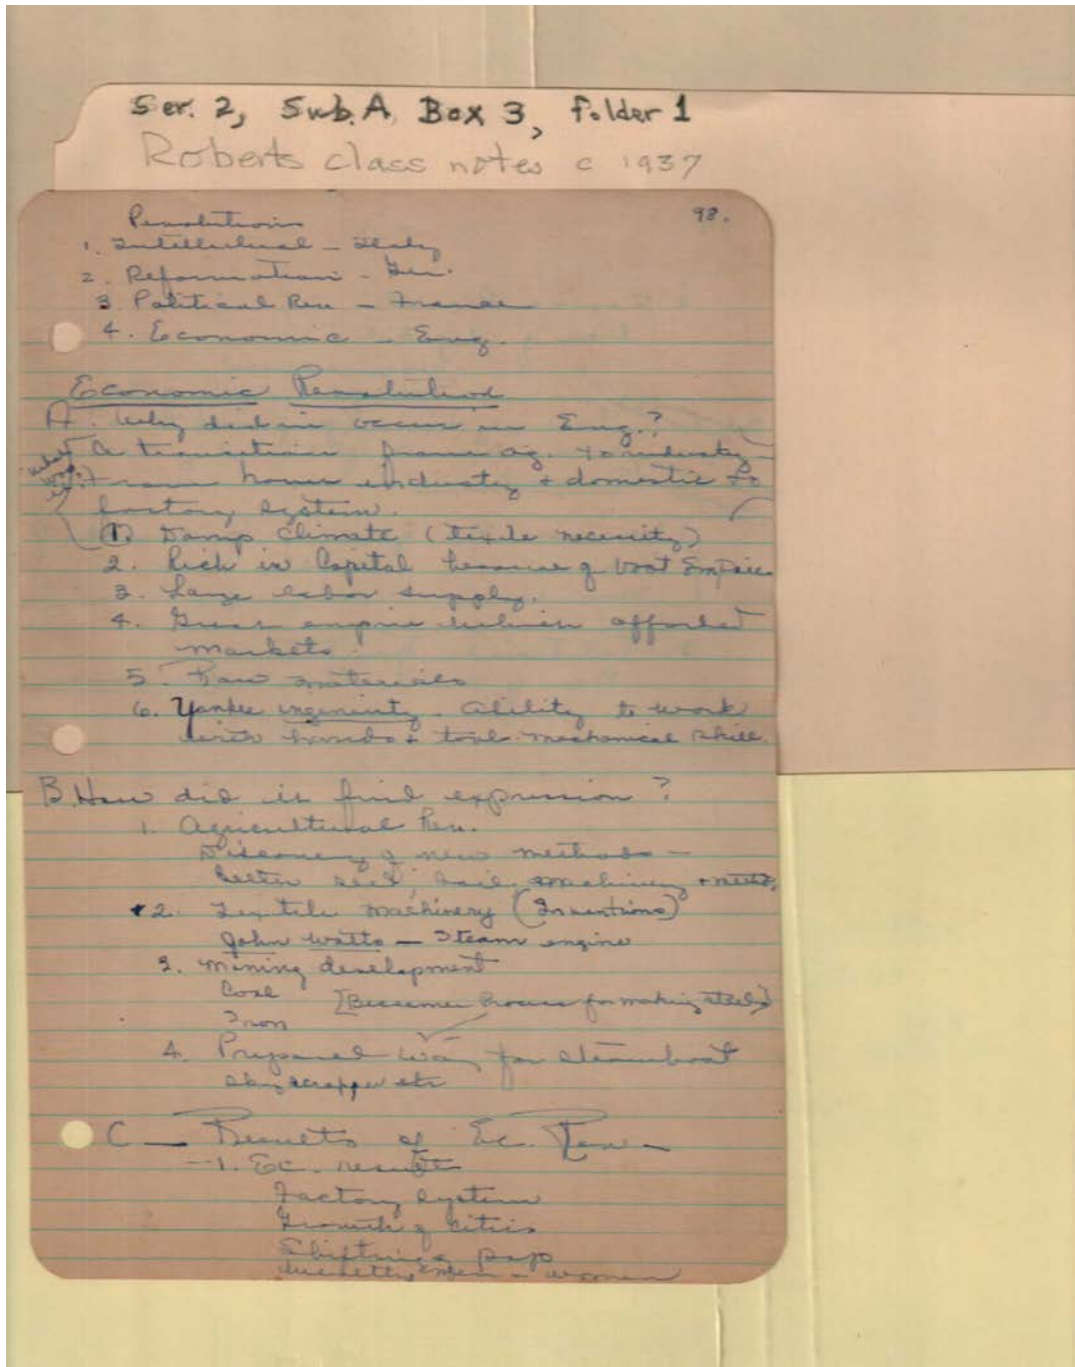 Ser. 2, Sub. A, Box 3, folder 1
Roberts class notes c 1937
98.
Revolutions
1. Intellectual - Italy
2. Reformation - Ger.
3. Political Rev - France
4. Economic - Eng.
Economic Revolution
A. Why did it occur in Eng.?
A transition from ag. to industry -
what was it
From home industry + domestic to
factory system.
1. Damp climate (textile necessity)
2. Rich in Capital because of vast Empire
3. Large labor supply.
4. Great empire which afforded
markets.
5. Raw materials
6. Yankee ingenuity. Ability to work
with hands + tools. mechanical skill.
B. How did it find expression?
1. Agricultural Rev.
Discovery of new methods -
better seed, soil, machinery +
2. Textile machinery (Inventions)
John Watts - Steam engine
3. Mining development
Coal [Bessemer Process for making steel]
Iron
4. Prepared way for steamboat
skyscrapper etc
C - Results of Ec. Rev -
1. Ec. result
Factory system
Growth of cities
Shifting pop
men - women